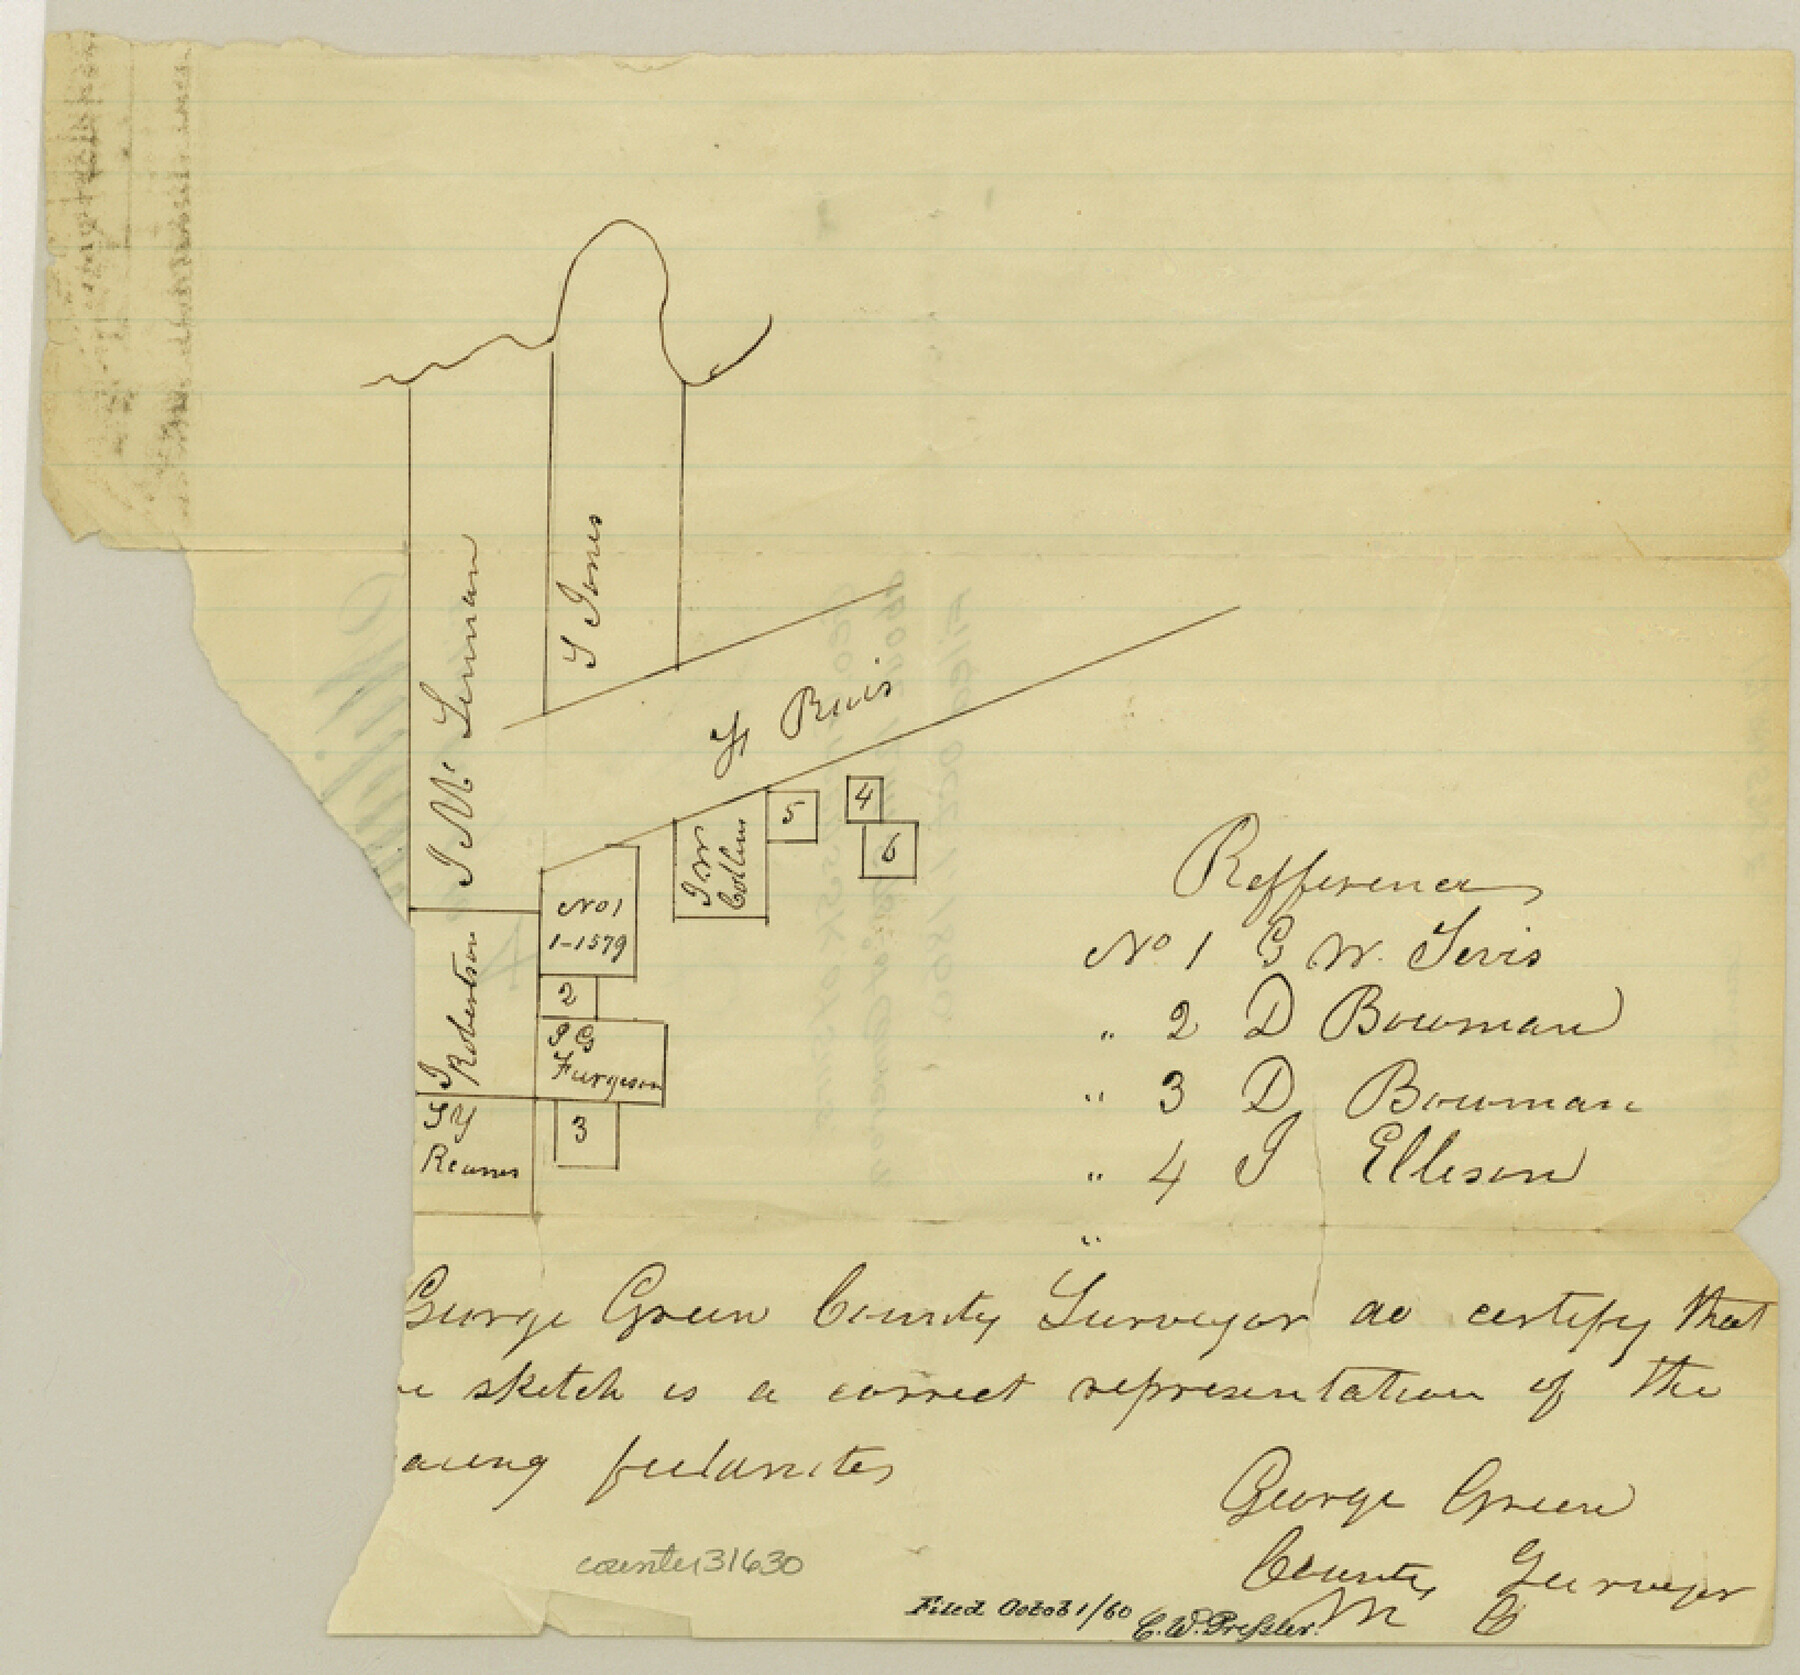 S Jones
F Ruis
5
4
6
J W
Collins
No 1
1-1579
2
J G
Furgeson
3
J
Robertson
S Y
Reams
Refference
No 1 G W. Tevis
" 2 D Bowman
" 3 D Bowman
" 4 J Elleson
"
George Green County Surveyor do certify that
sketch is a correct representation of the
George Green
County Surveyor
M C
counter 31630
Filed Octob 1/60
C. W. Preßler.